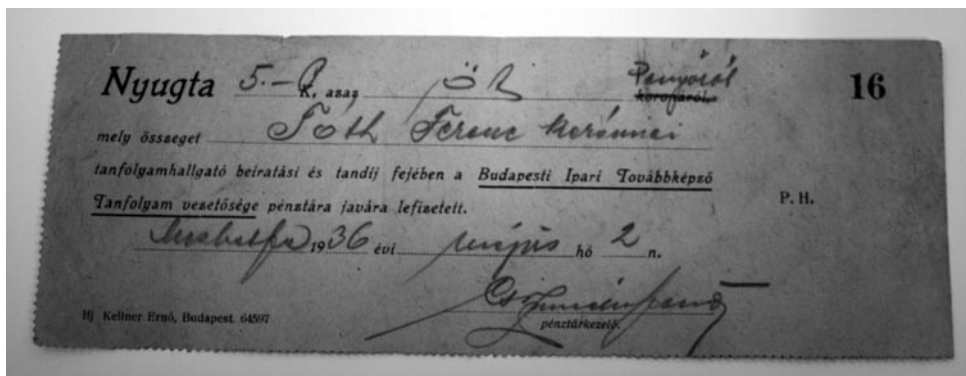 Nyugta 5.- K. azaz öt Pengőről koronáról. 16
mely összeget Tóth Ferenc
tanfolyamhallgató beiratási és tandíj fejében a Budapesti Ipari Továbbképző
Tanfolyam vezetősége pénztára javára lefizetett. P. H.
1936 évi május hó 2 n.
pénztárkezelő.
Ifj Kellner Ernő, Budapest. 64597